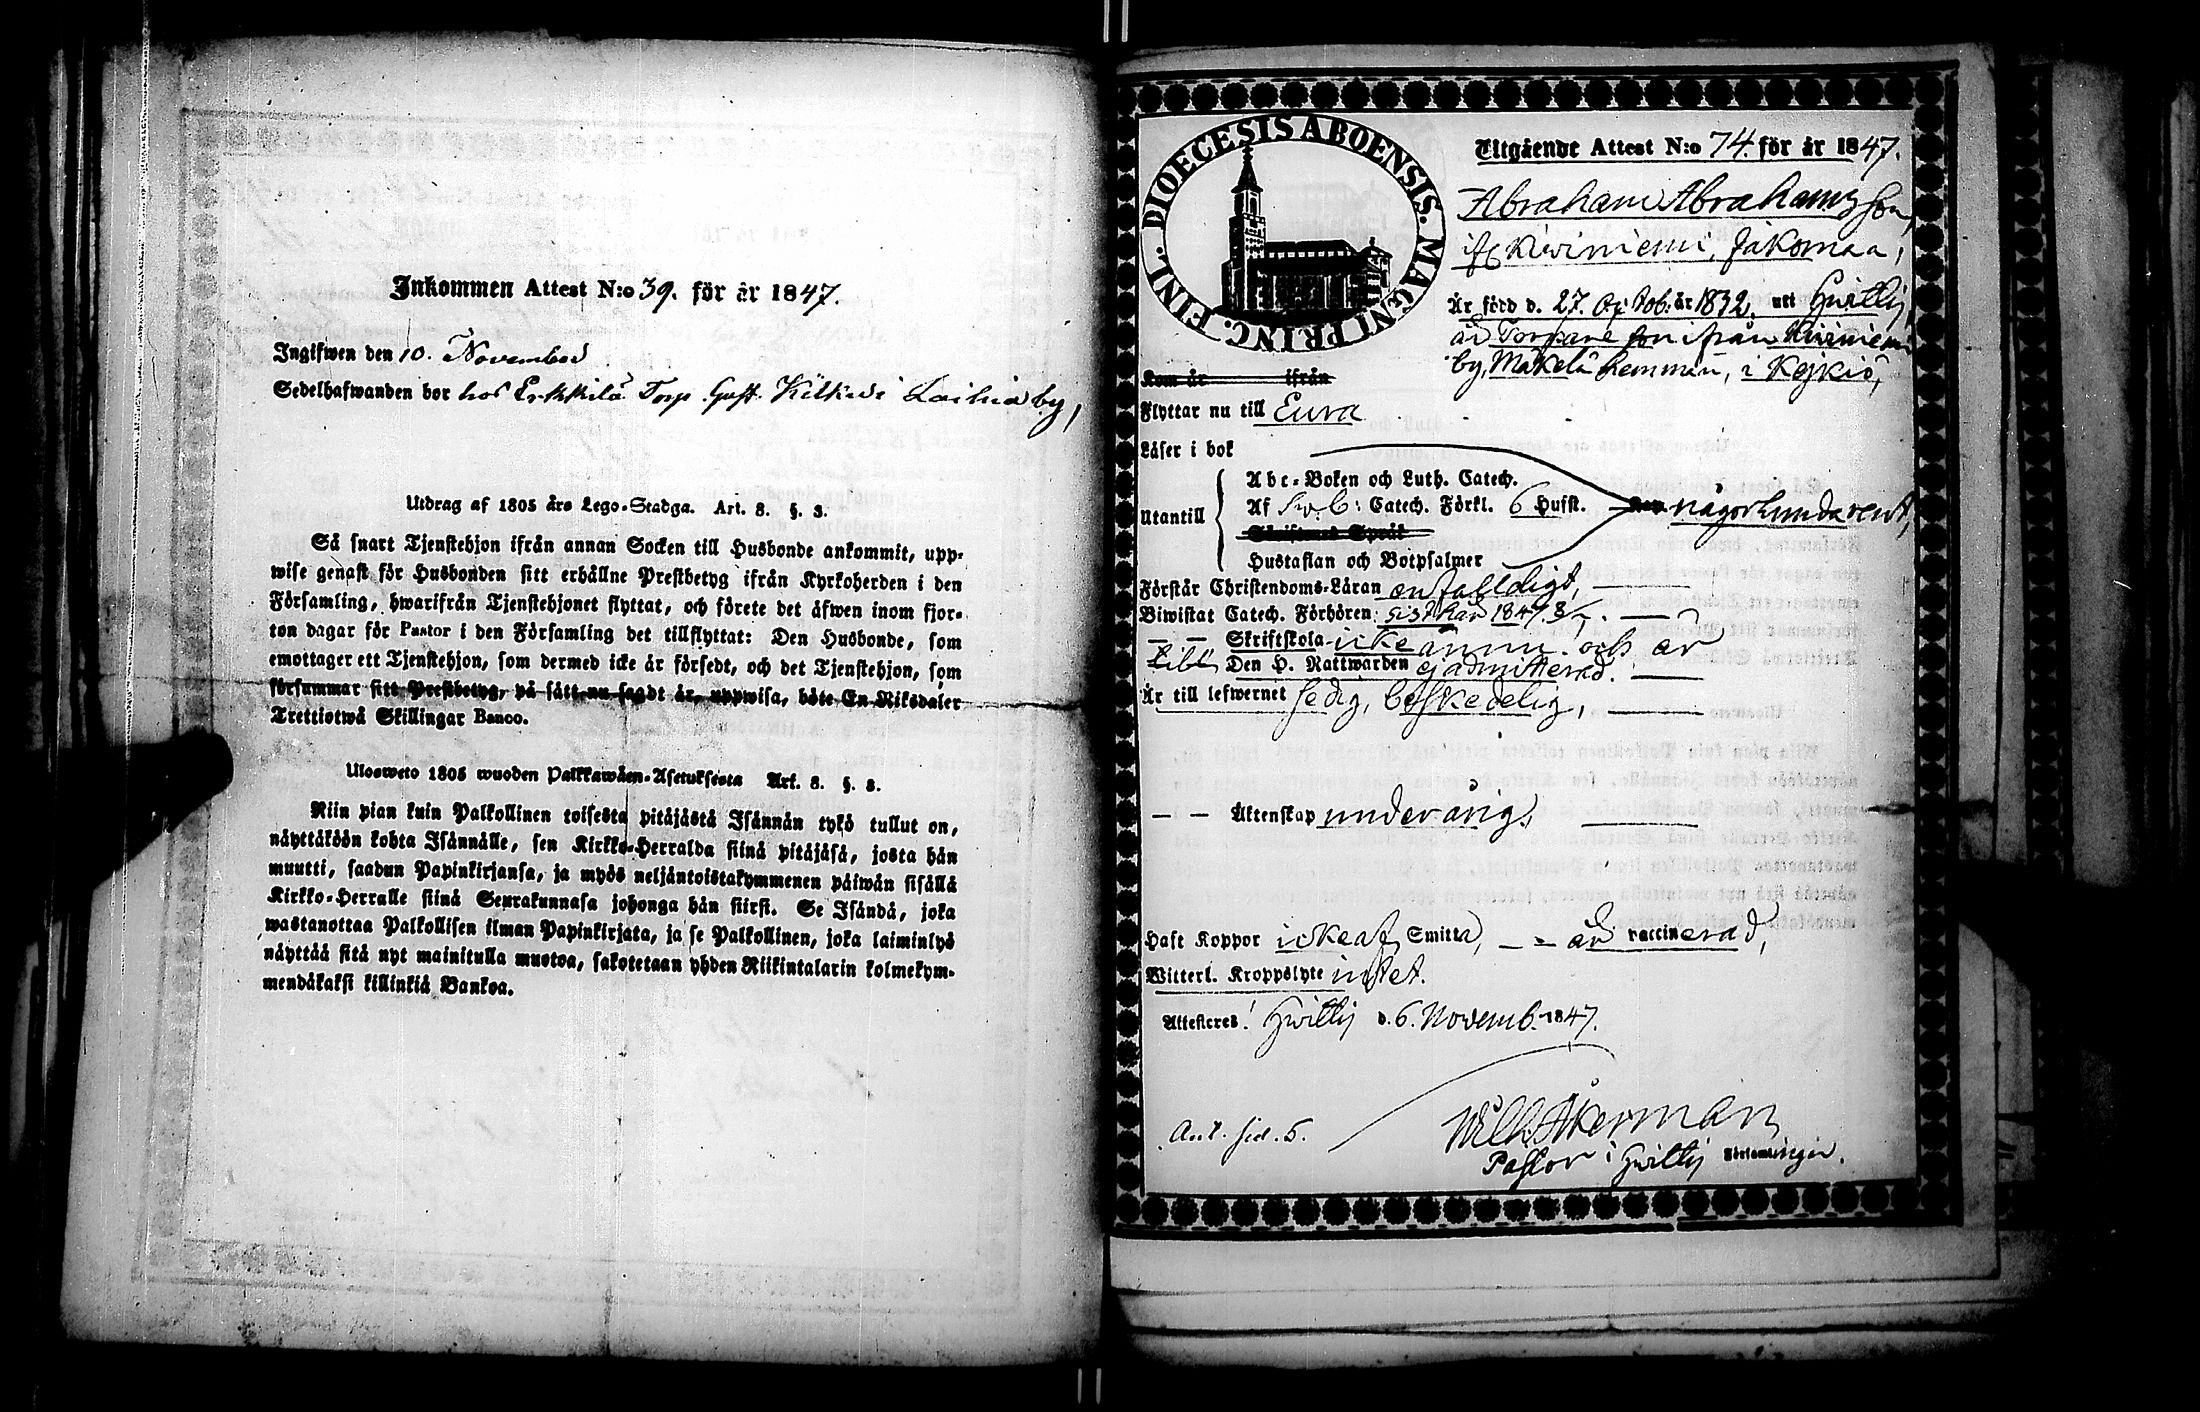 Inkommen Attest N:o 39. för år 1847.
Ingifwen den 10. November
Sedelhafwanden bor hos Erkkilä Torp. Gust. Kilkki Laihia by,
Utdrag af 1805 års Lego-Stadga. Art. 8. §. 3.
Så snart Tjenstehjon ifrån annan Socken till Husbonde ankommit, upp-
wise genast för Husbonden sitt erhållne Prestbetyg ifrån Kyrkoherden i den
Församling, hwarifrån Tjenstehjonet flyttat, och förete det äfwen inom fjor-
ton dagar för Pastor i den Församling det tillflyttat: Den Husbonde, som
emottager ett Tjenstehjon, som dermed icke är försedt, och det Tjenstehjon, som
försummar sitt Prestbetyg, på sätt nu sagdt är, uppwisa, böte En Riksdaler
Trettiotwå Skillingar Banco.
Ulosweto 1805 wuoden Palkkawäen-Asetuksesta Art. 8. §. 3.
Niin pian kuin Palkollinen toisesta pitäjästä Isännän tykö tullut on,
näyttäköön kohta Isännälle, sen Kirkko-Herralda siinä pitäjäsä, josta hän
muutti, saadun Papinkirjansa, ja myös neljäntoistakymmenen päiwän sisällä
Kirkko-Herralle siinä Seurakunnasa johonga hän siirsi. Se Isändä, joka
wastanottaa Palkollisen ilman Papinkirjata, ja se Palkollinen, joka laiminlyö
näyttää sitä nyt mainitulla muotoa, sakotetaan yhden Riikintalarin kolmekym-
mendäkaksi killinkiä Bankoa.
DIOECESIS ABOENSIS. MAGNI PRINC. FINL.
Utgående Attest N:o 74. för år 1847.
Abraham Abrahamsson,
ifr. Kiviniemi, Jakomaa,
Är född d. 27. Octob. år 1832. uti Hvittis,
är Torpare son ifrån Kiviniemi
by, Mäkelä hemman, i Kejkiö,
Kom år ifrån
Flyttar nu till Eura
Läser i bok
Abc-Boken och Luth. Catech.
Utantill Af Sveb: Catech. Förkl. 6 Hufst. någorlunda rent,
Skriftenes Språk
Hustaflan och Botpsalmer
Förstår Christendoms-Läran enfaldigt,
Biwistat Catech. Förhören: sist här 1847.
Skriftskola icke ännu. och är
Den H. Nattwarden ej admitterad.
Är till lefwernet sedig, beskedelig,
Äktenskap underårig.
Haft Koppor icke af Smitta, är vaccinerad,
Witterl. Kroppslyte intet.
Attesteres! Hvittis d. 6. Novemb. 1847.
Ant. sid. 5.
Wilh. Åkerman
Pastor i Hvittis Församlingar.